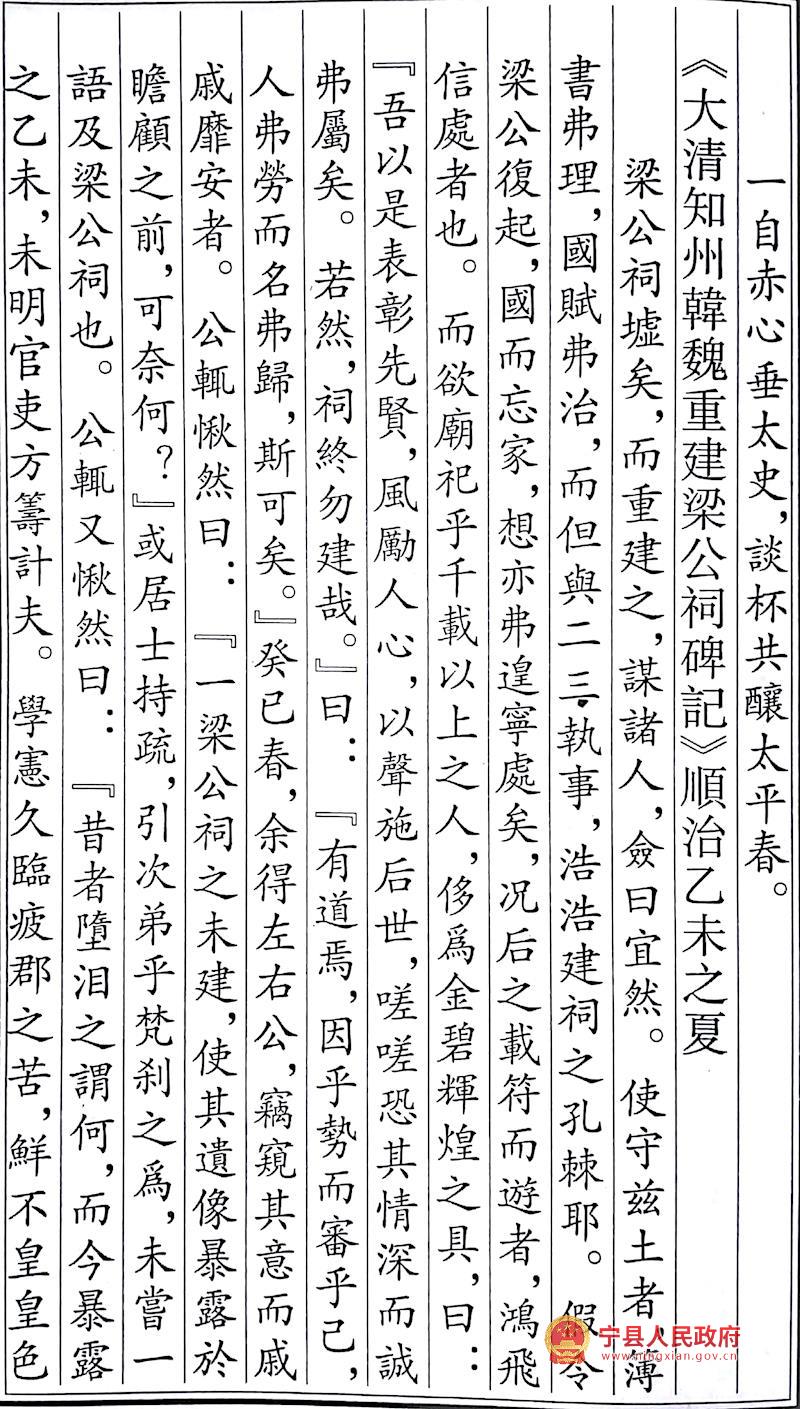 一自赤心垂太史，談杯共釀太平春。
《大清知州韓魏重建梁公祠碑記》順治乙未之夏
梁公祠墟矣，而重建之，謀諸人，僉曰宜然。使守兹土者，簿
書弗理，國賦弗治，而但與二三執事，浩浩建祠之孔棘耶。假令
梁公復起，國而忘家，想亦弗遑寧處矣，况后之載符而遊者，鴻飛
信處者也。而欲廟祀乎千載以上之人，侈爲金碧輝煌之具，曰：
『吾以是表彰先賢，風勵人心，以聲施后世，嗟嗟恐其情深而誠
弗屬矣。若然，祠終勿建哉。』曰：『有道焉，因乎勢而審乎己，
人弗勞而名弗歸，斯可矣。』癸巳春，余得左右公，竊窺其意而戚
戚靡安者。公輒愀然曰：『一梁公祠之未建，使其遺像暴露於
瞻顧之前，可奈何？』或居士持疏，引次弟乎梵刹之爲，未嘗一
語及梁公祠也。公輒又愀然曰：『昔者墮泪之謂何，而今暴露
之乙未，未明官吏方籌計夫。學憲久臨疲郡之苦，鮮不皇皇色
宁县人民政府
www.ningxian.gov.cn